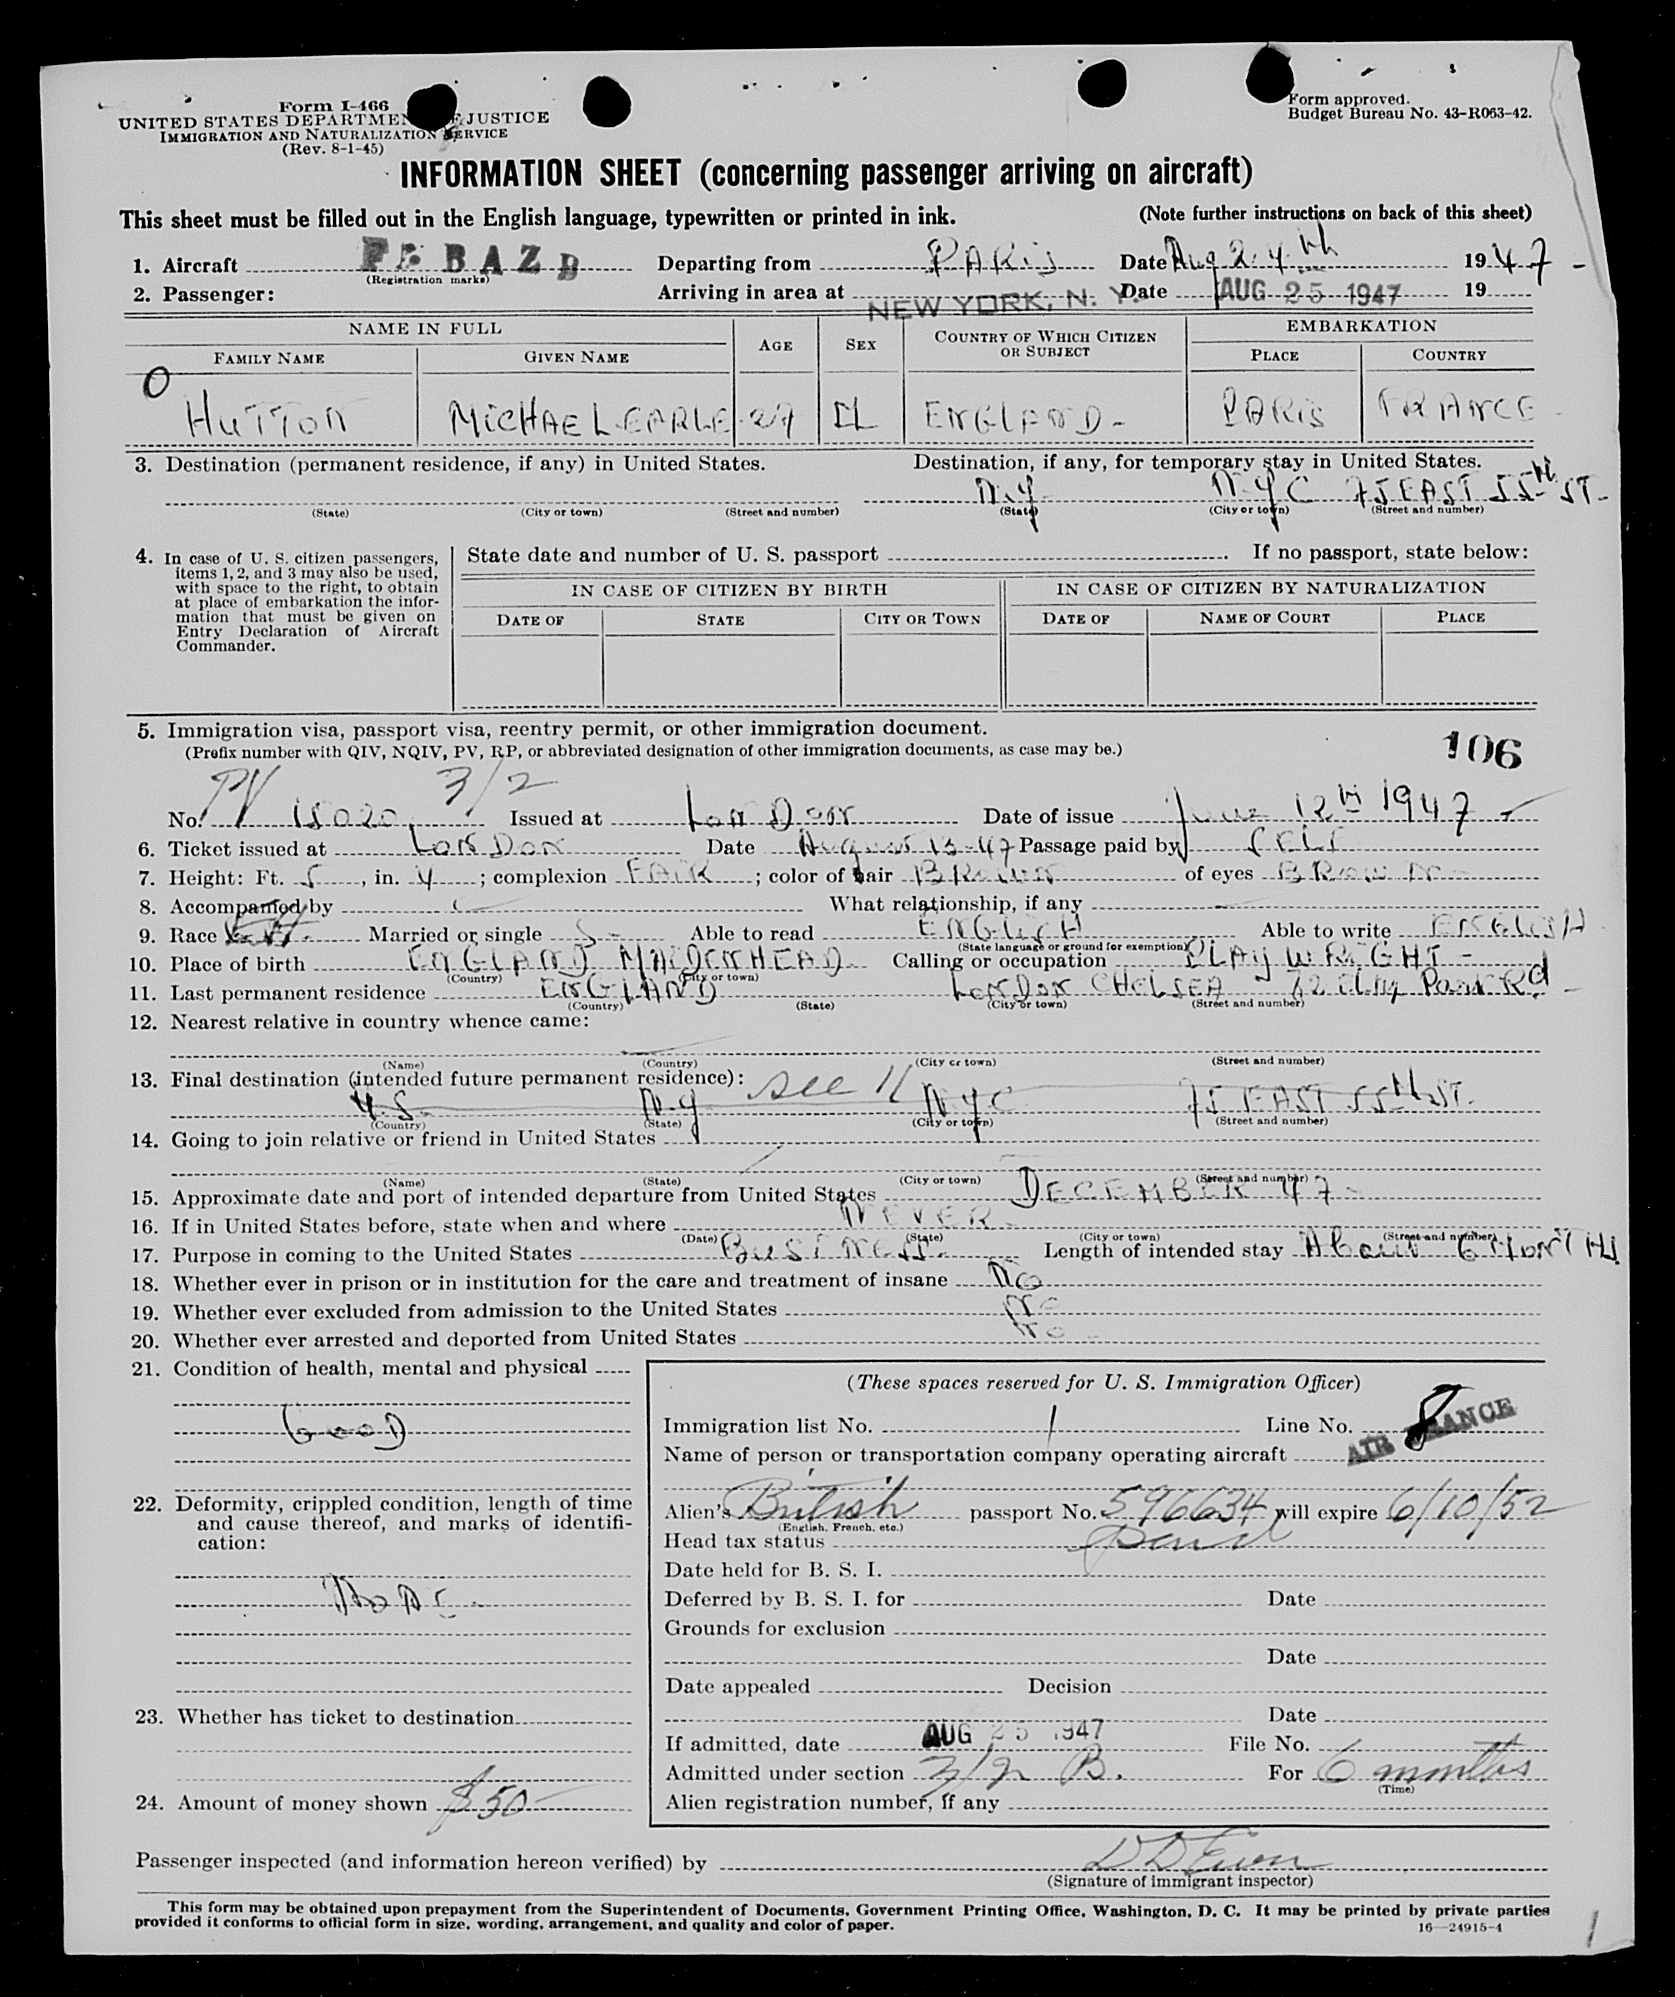 Form I-466
UNITED STATES DEPARTMENT OF JUSTICE
IMMIGRATION AND NATURALIZATION SERVICE
(Rev. 8-1-45)
Form approved.
Budget Bureau No. 43-R063-42.
INFORMATION SHEET (concerning passenger arriving on aircraft)
This sheet must be filled out in the English language, typewritten or printed in ink.
(Note further instructions on back of this sheet)
1. Aircraft F BAZD Departing from PARIS Date Aug 24th 1947 -
(Registration marks)
2. Passenger: Arriving in area at NEW YORK, N. Y. Date AUG 25 1947 19
NAME IN FULL AGE SEX COUNTRY OF WHICH CITIZEN OR SUBJECT EMBARKATION
FAMILY NAME GIVEN NAME PLACE COUNTRY
HUTTON MICHAEL EARLE 27 ENGLAND - PARIS FRANCE -
3. Destination (permanent residence, if any) in United States. Destination, if any, for temporary stay in United States.
N.Y. NYC 75 EAST 55TH ST-
(State) (City or town) (Street and number) (State) (City or town) (Street and number)
4. In case of U. S. citizen passengers, items 1, 2, and 3 may also be used, with space to the right, to obtain at place of embarkation the information that must be given on Entry Declaration of Aircraft Commander.
State date and number of U. S. passport If no passport, state below:
IN CASE OF CITIZEN BY BIRTH IN CASE OF CITIZEN BY NATURALIZATION
DATE OF STATE CITY OR TOWN DATE OF NAME OF COURT PLACE
5. Immigration visa, passport visa, reentry permit, or other immigration document.
(Prefix number with QIV, NQIV, PV, RP, or abbreviated designation of other immigration documents, as case may be.)
106
PV 3/2
No. 15020 Issued at LONDON Date of issue June 12th 1947 -
6. Ticket issued at LONDON Date August 13-47 Passage paid by SELF
7. Height: Ft. 5, in. 4; complexion FAIR; color of hair BROWN of eyes BROWN -
8. Accompanied by What relationship, if any
9. Race Married or single S - Able to read ENGLISH Able to write ENGLISH
(State language or ground for exemption)
10. Place of birth ENGLAND MAIDENHEAD Calling or occupation PLAYWRIGHT -
(Country) (City or town)
11. Last permanent residence ENGLAND LONDON CHELSEA 72 Elm Park Rd -
(Country) (State) (City or town) (Street and number)
12. Nearest relative in country whence came:
(Name) (Country) (City or town) (Street and number)
13. Final destination (intended future permanent residence): see 11
U.S. N.Y NYC 75 EAST 55TH ST.
(Country) (State) (City or town) (Street and number)
14. Going to join relative or friend in United States
(Name) (State) (City or town) (Street and number)
15. Approximate date and port of intended departure from United States DECEMBER 47 -
16. If in United States before, state when and where NEVER -
(Date) (State) (City or town) (Street and number)
17. Purpose in coming to the United States BUSINESS. Length of intended stay About 6 MONTHS
18. Whether ever in prison or in institution for the care and treatment of insane No
19. Whether ever excluded from admission to the United States No
20. Whether ever arrested and deported from United States No
21. Condition of health, mental and physical
GOOD
22. Deformity, crippled condition, length of time and cause thereof, and marks of identification:
23. Whether has ticket to destination
24. Amount of money shown $50-
(These spaces reserved for U. S. Immigration Officer)
Immigration list No. 1 Line No. 8
AIR FRANCE
Name of person or transportation company operating aircraft
Alien's British passport No. 596634 will expire 6/10/52
(English, French, etc.)
Head tax status Paid
Date held for B. S. I.
Deferred by B. S. I. for Date
Grounds for exclusion
Date
Date appealed Decision
Date
If admitted, date AUG 25 1947 File No.
Admitted under section 3/2 B. For 6 months
(Time)
Alien registration number, if any
Passenger inspected (and information hereon verified) by
(Signature of immigrant inspector)
This form may be obtained upon prepayment from the Superintendent of Documents, Government Printing Office, Washington, D. C. It may be printed by private parties
provided it conforms to official form in size, wording, arrangement, and quality and color of paper.
16—24915-4